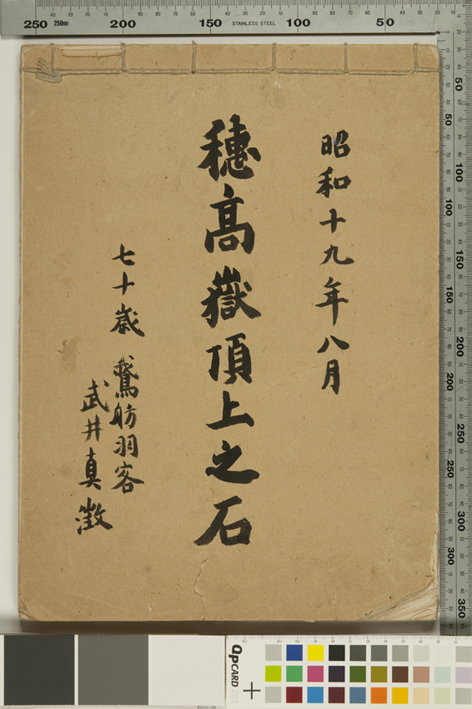 昭和十九年八月
穗高嶽頂上之石
七十歲 鵞舫羽客
武井真澂
250 250mm 200 150 STAINLESS STEEL 100 50
50
100
150
200
250
300
50
100
150
200
250
300
350
QPCARD